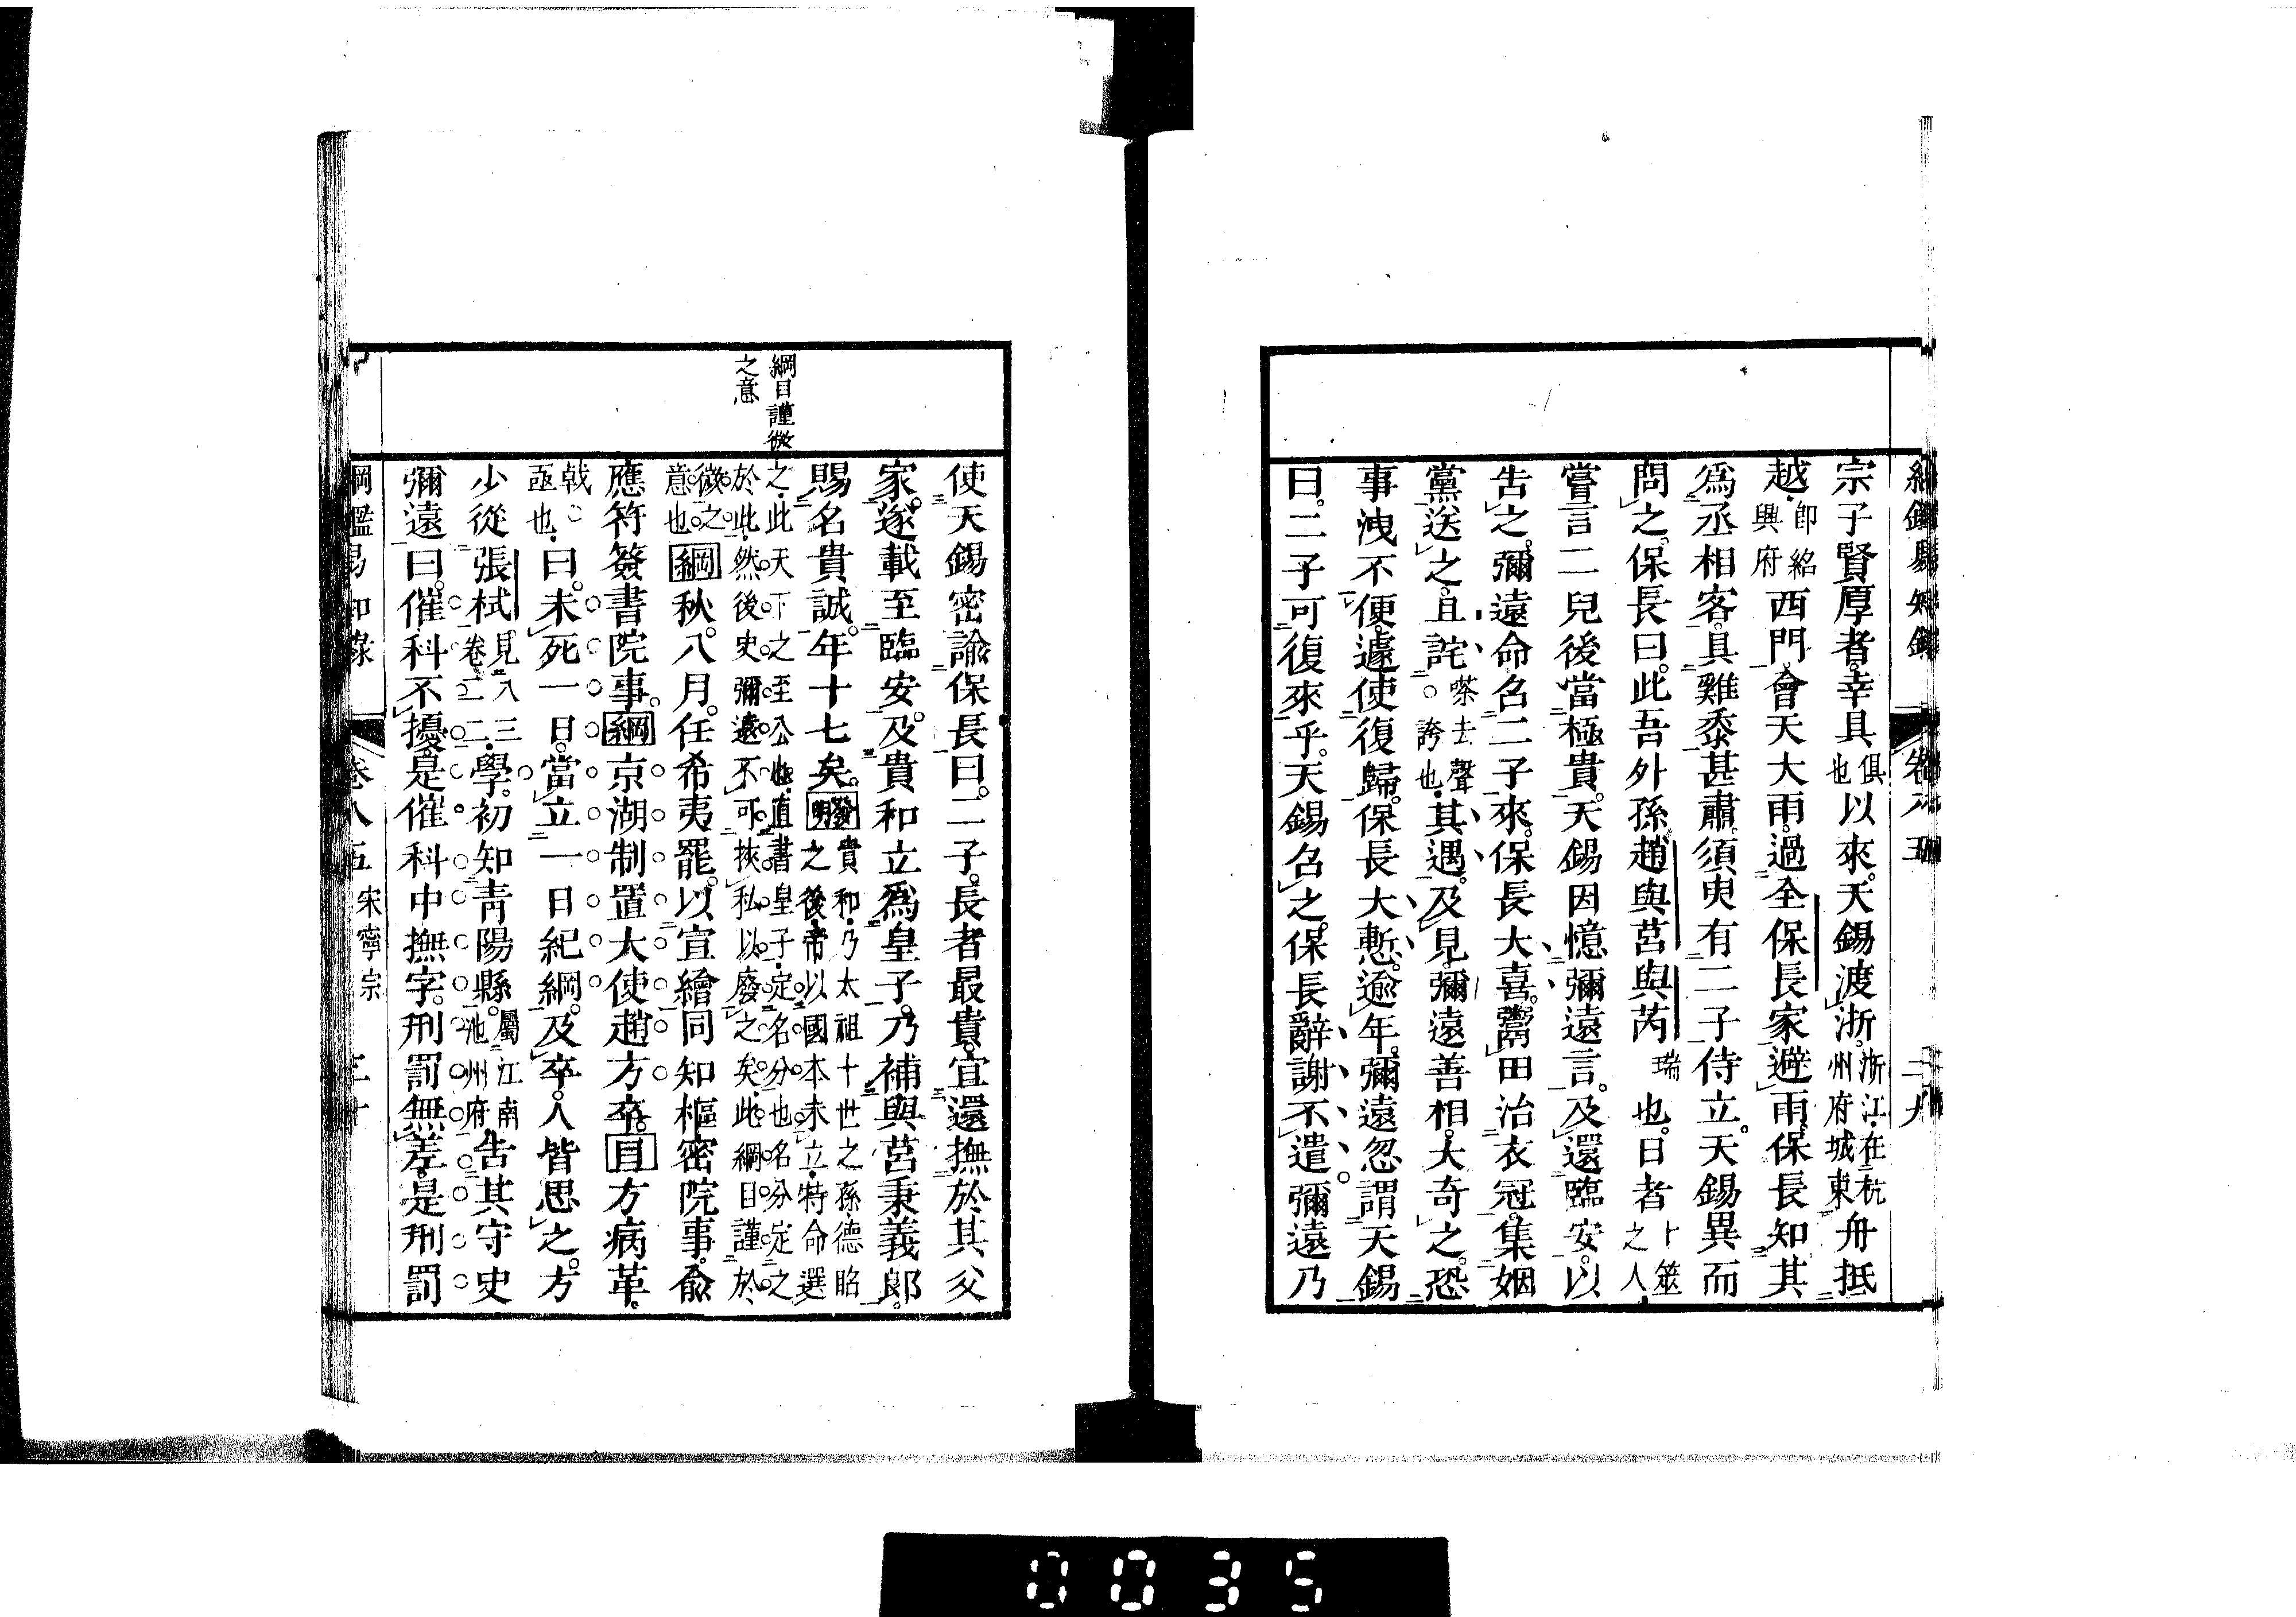 宗子賢厚者。幸具俱也以來。天錫渡浙。浙江在杭州府城東舟抵
越卽紹興府西門。會天大雨。過全保長家避雨。保長知其
爲丞相客。具雞黍甚肅。須臾有二子侍立。天錫異而
問之。保長曰。此吾外孫趙與莒與芮瑞也。日者卜筮之人
嘗言二兒後當極貴。天錫因憶彌遠言。及還臨安。以
告之。彌遠命召二子來。保長大喜。鬻田治衣冠。集姻
黨送之。且詫嗏去聲○誇也其遇。及見。彌遠善相。大奇之。恐
事洩不便。遽使復歸。保長大慙。逾年。彌遠忽謂天錫
曰。二子可復來乎。天錫召之。保長辭謝不遣。彌遠乃
綱目謹微
之意
使天錫密諭保長曰。二子。長者最貴。宜還撫於其父
家。遂載至臨安。及貴和立爲皇子。乃補與莒秉義郎。
賜名貴誠。年十七矣。發明貴和乃太祖十世之孫德昭之後帝以國本未立特命選
之此天下之至公也直書皇子定名分也名分定之於此然後史彌遠不可挾私以廢之矣此綱目謹於
微之意也綱秋。八月。任希夷罷。以宣繒同知樞密院事。兪
應符簽書院事。綱京湖制置大使趙方卒。目方病革。
戟亟也曰。未死一日。當立一日紀綱。及卒。人皆思之。方
少從張栻見八三卷二二學。初知靑陽縣。屬江南池州府告其守史
彌遠曰。催科不擾。是催科中撫字。刑罰無差。是刑罰
卷八五 宋寧宗
0035